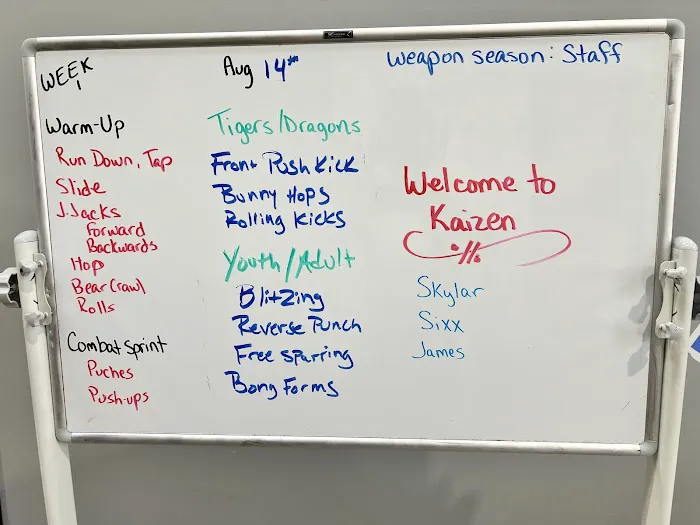 WEEK
1
Warm-Up
Run Down, Tap
Slide
J.Jacks
Forward
Backwards
Hop
Bear Crawl
Rolls
Combat sprint
Puches
Push-ups
Aug 14th
Tigers/Dragons
Front Push Kick
Bunny Hops
Rolling Kicks
Youth/Adult
Blitzing
Reverse Punch
Free sparring
Bong Forms
Weapon season: Staff
Welcome to
Kaizen
Skylar
Sixx
James